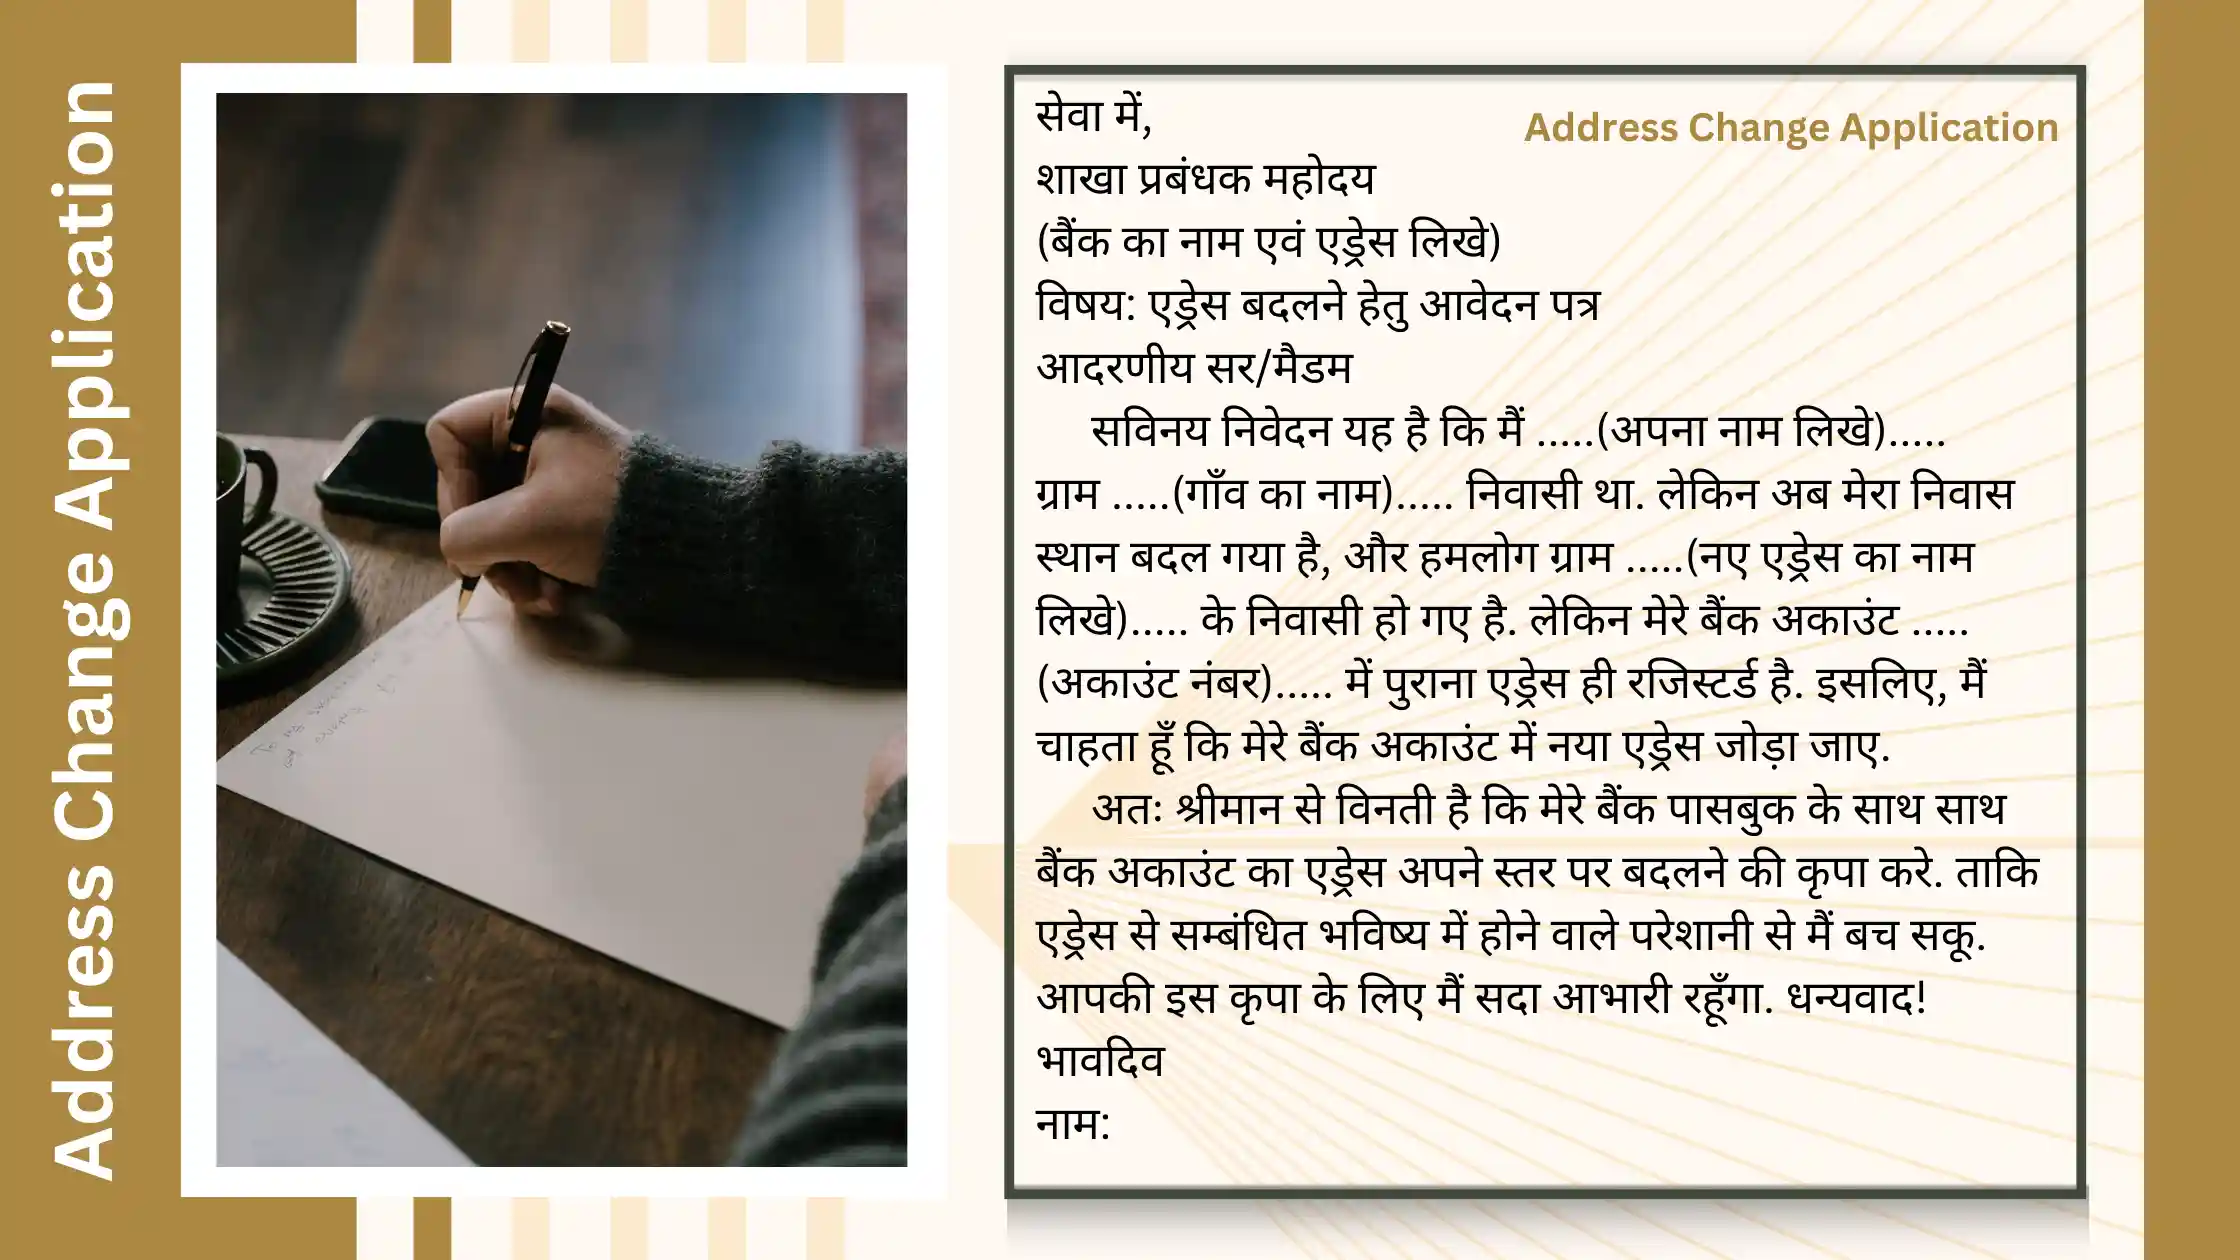 Address Change Application
Address Change Application
सेवा में,
शाखा प्रबंधक महोदय
(बैंक का नाम एवं एड्रेस लिखे)
विषय: एड्रेस बदलने हेतु आवेदन पत्र
आदरणीय सर/मैडम
सविनय निवेदन यह है कि मैं .....(अपना नाम लिखे).....
ग्राम .....(गाँव का नाम)..... निवासी था. लेकिन अब मेरा निवास
स्थान बदल गया है, और हमलोग ग्राम .....(नए एड्रेस का नाम
लिखे)..... के निवासी हो गए है. लेकिन मेरे बैंक अकाउंट .....
(अकाउंट नंबर)..... में पुराना एड्रेस ही रजिस्टर्ड है. इसलिए, मैं
चाहता हूँ कि मेरे बैंक अकाउंट में नया एड्रेस जोड़ा जाए.
अतः श्रीमान से विनती है कि मेरे बैंक पासबुक के साथ साथ
बैंक अकाउंट का एड्रेस अपने स्तर पर बदलने की कृपा करे. ताकि
एड्रेस से सम्बंधित भविष्य में होने वाले परेशानी से मैं बच सकू.
आपकी इस कृपा के लिए मैं सदा आभारी रहूँगा. धन्यवाद!
भावदिव
नाम: